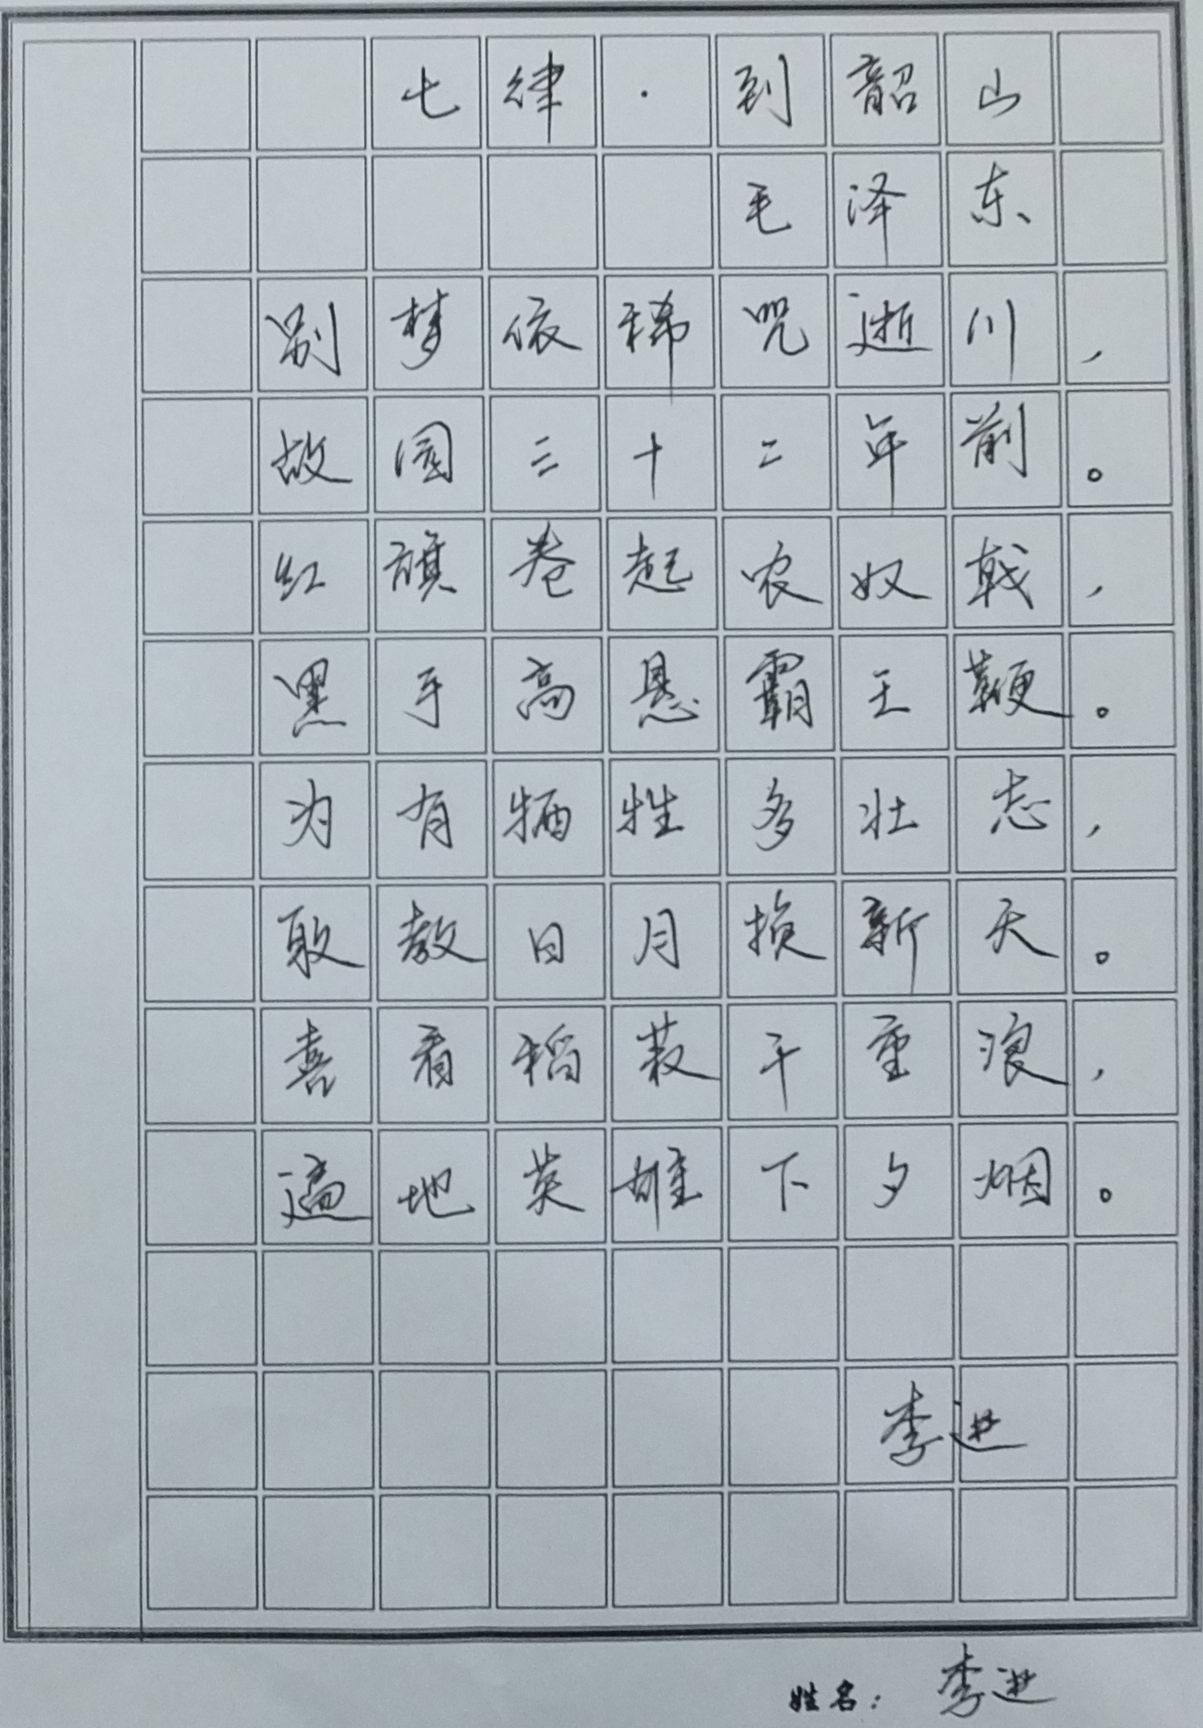 七律·到韶山
毛泽东
别梦依稀咒逝川,
故园三十二年前。
红旗卷起农奴戟,
黑手高悬霸王鞭。
为有牺牲多壮志,
敢教日月换新天。
喜看稻菽千重浪,
遍地英雄下夕烟。
李进
姓名:李进